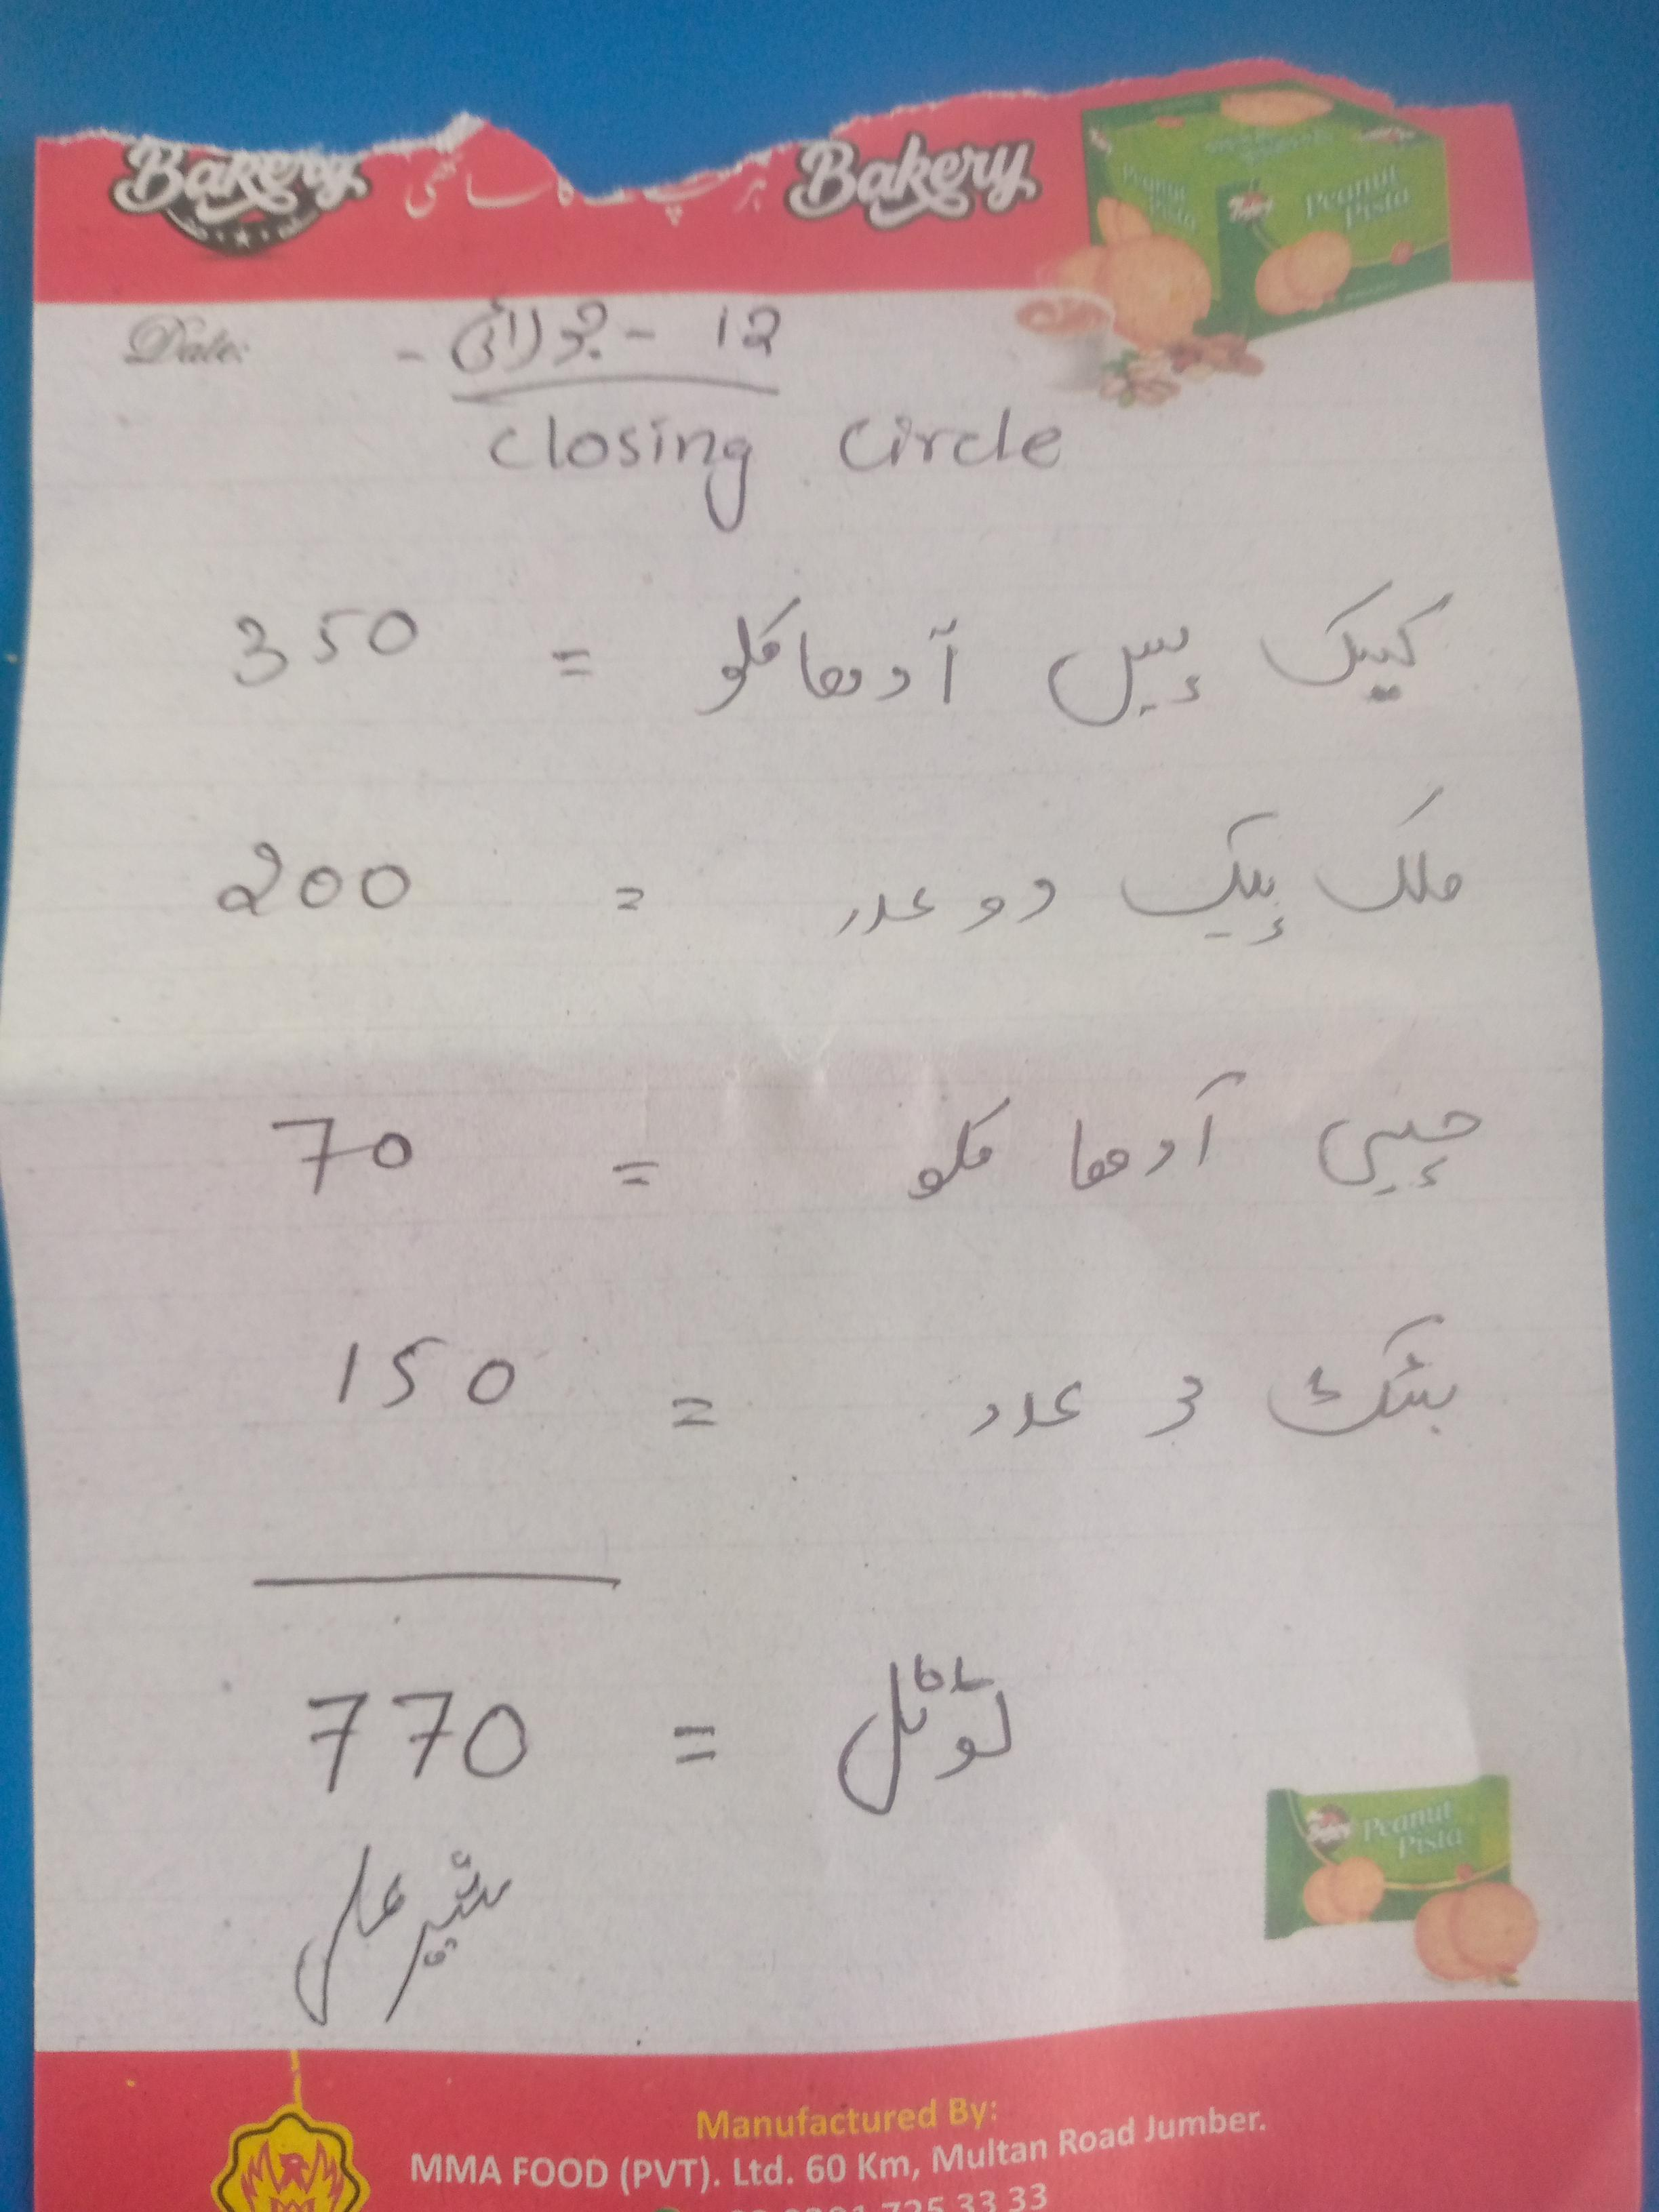 Bakery ہر پل کا ساتھی Bakery
Peanut Pista
Peanut Pista
Date: 12 - جولائی -
Closing Circle
کیک پیس آدھا کلو = 350
ملک پیک دو عدد = 200
چینی آدھا کلو = 70
بسکٹ 3 عدد = 150
ٹوٹل = 770
شیر علی
Peanut Pista
Manufactured By:
MMA FOOD (PVT). Ltd. 60 Km, Multan Road Jumber.
725 33 33